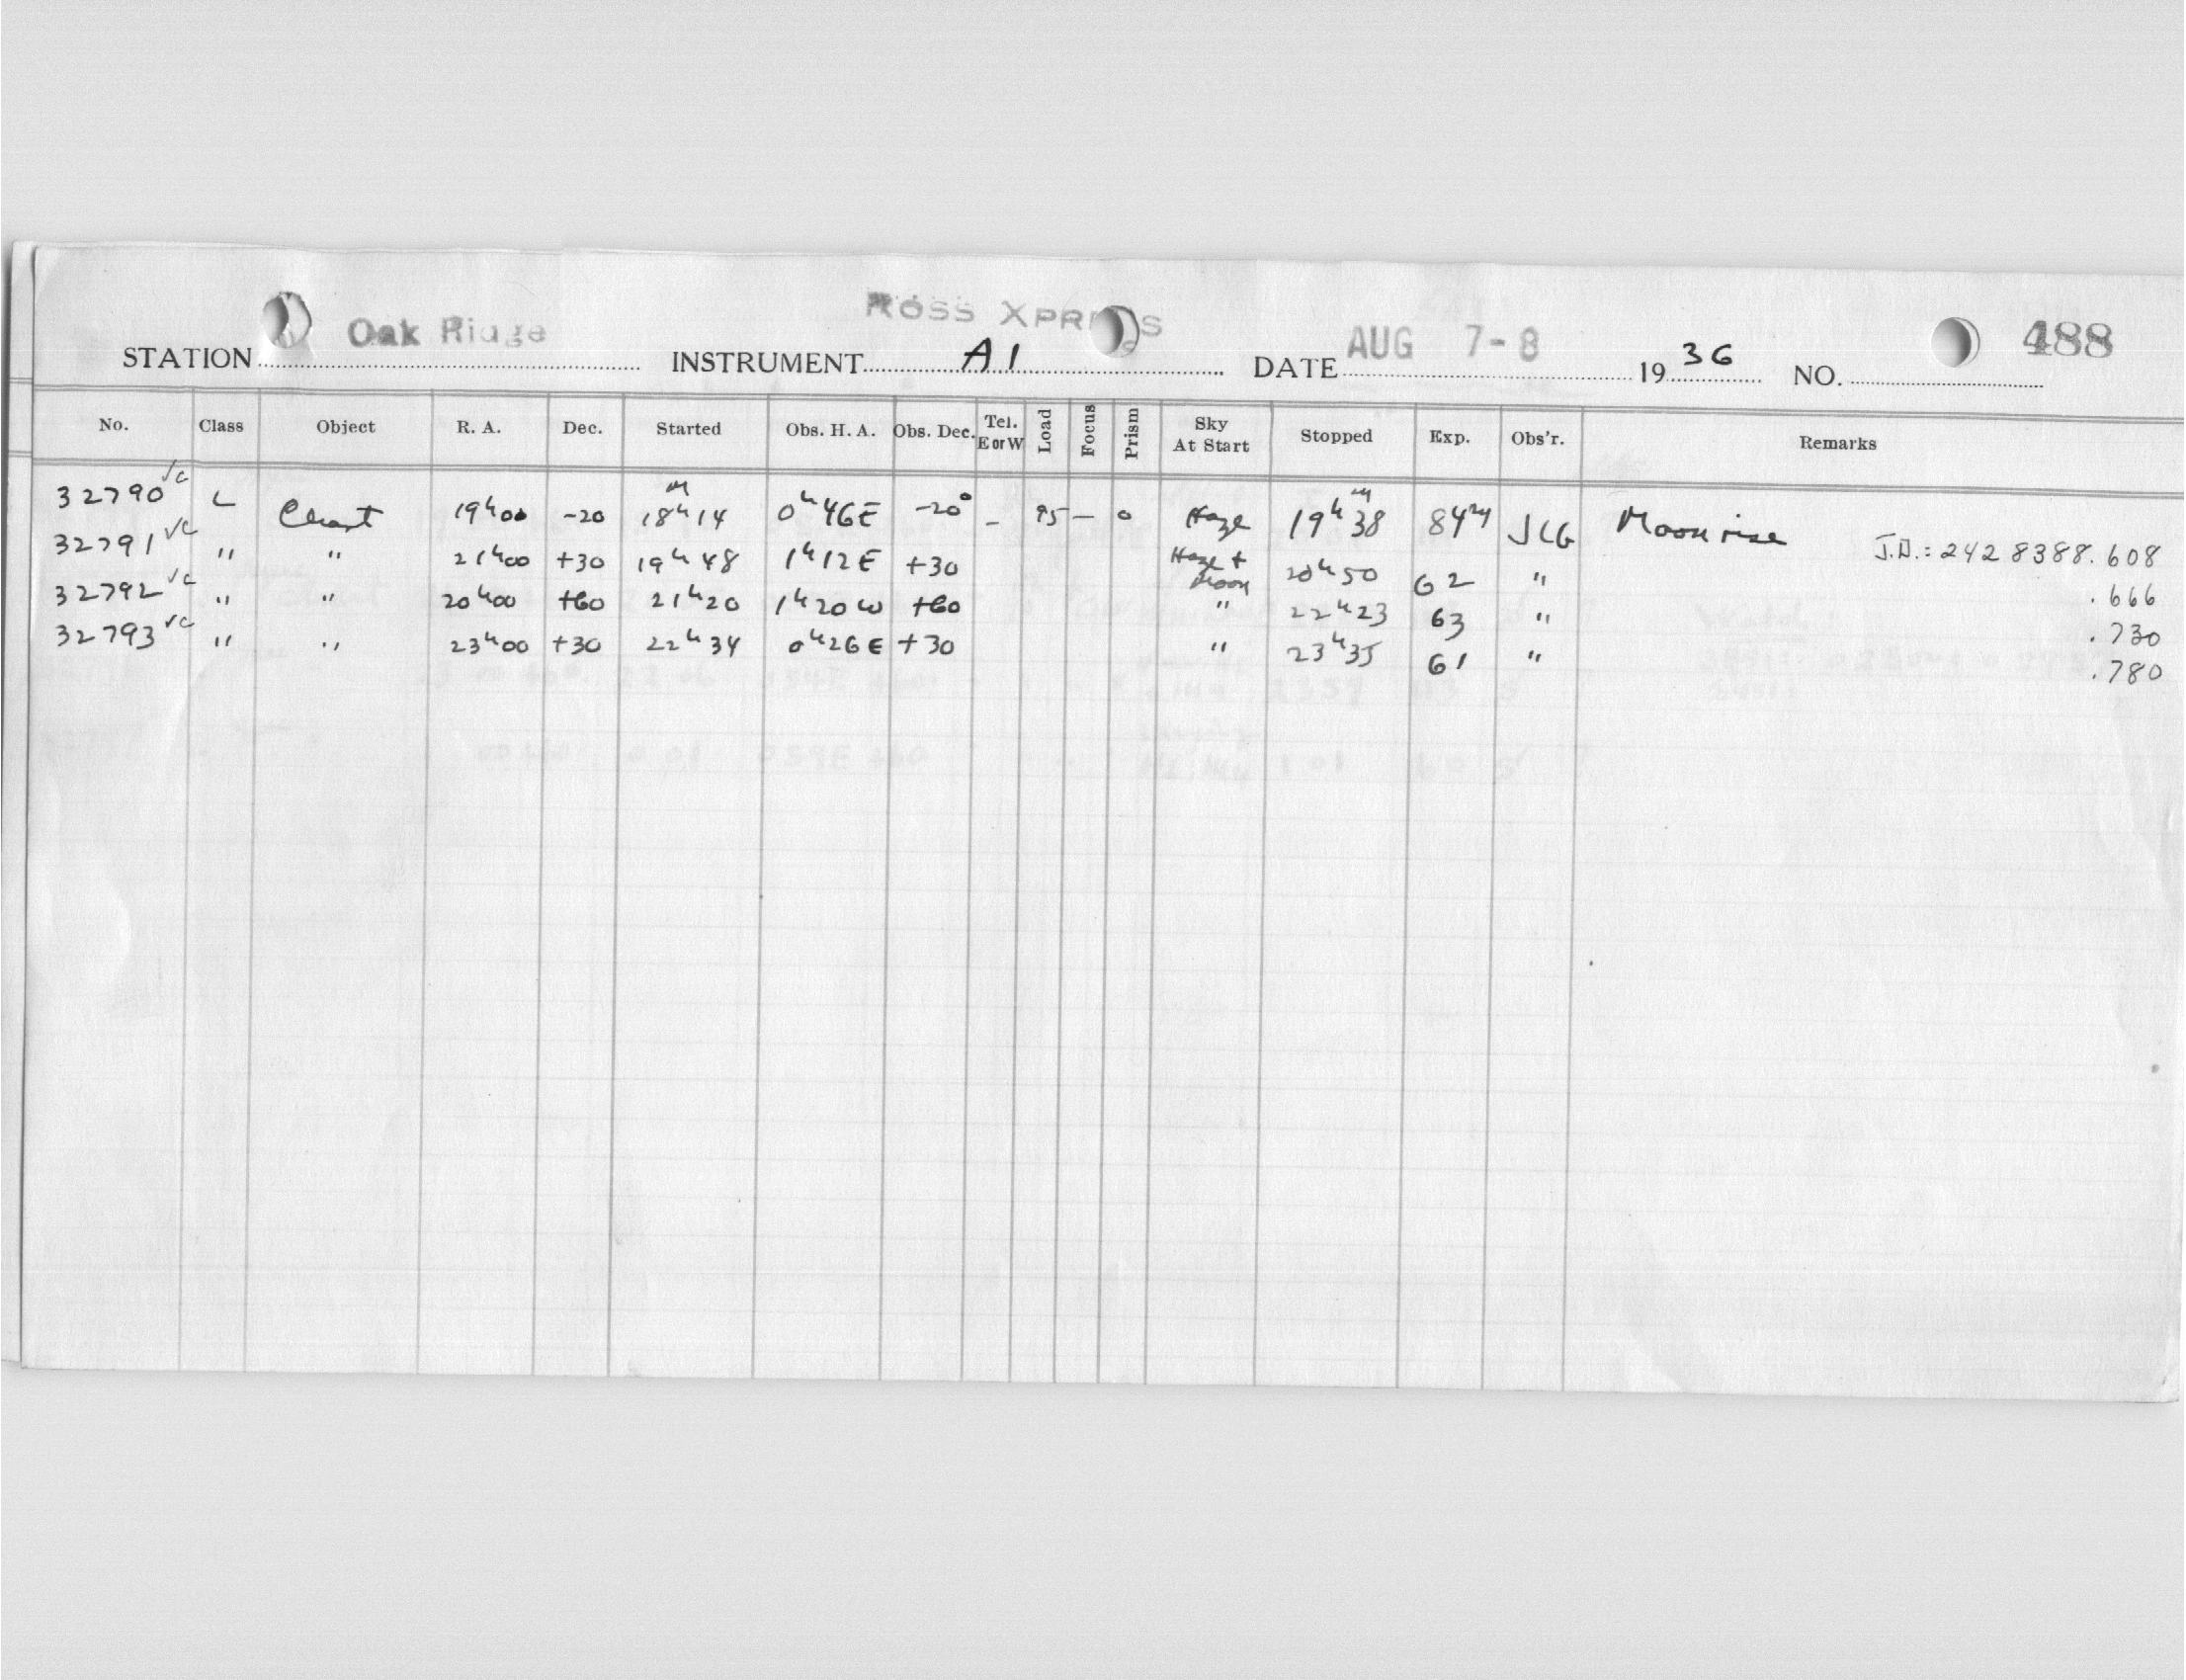 ROSS XPRESS
STATION Oak Ridge INSTRUMENT A1 DATE AUG 7-8 1936 NO. 488
No. Class Object R. A. Dec. Started Obs. H. A. Obs. Dec. Tel. E or W Load Focus Prism Sky At Start Stopped Exp. Obs'r. Remarks
32790 √c L Chart 19h00 -20 18h14m 0h46E -20° - 95 - 0 Haze 19h38m 84m JCG Moonrise J.D.: 242 8388.608
32791 √c " " 21h00 +30 19h48 1h12E +30 Haze + Moon 20h50 62 " .666
32792 √c " " 20h00 +60 21h20 1h20W +60 " 22h23 63 " .730
32793 √c " " 23h00 +30 22h34 0h26E +30 " 23h35 61 " .780